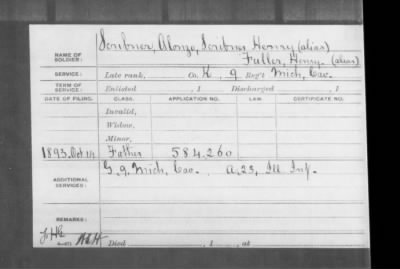 Scribner, Alonzo, Scribner Henry (alias)
NAME OF SOLDIER: Fuller, Henry. (alias)
SERVICE: Late rank, Co. K, 9 Reg't Mich, Cav.
TERM OF SERVICE: Enlisted , 1 Discharged , 1
DATE OF FILING. CLASS. APPLICATION NO. LAW. CERTIFICATE NO.
Invalid,
Widow,
Minor,
1893, Oct 14 Father 584.260
ADDITIONAL SERVICES: G. 9, Mich, Cav. A, 23, Ill Inf.
REMARKS:
Died , 1 , at